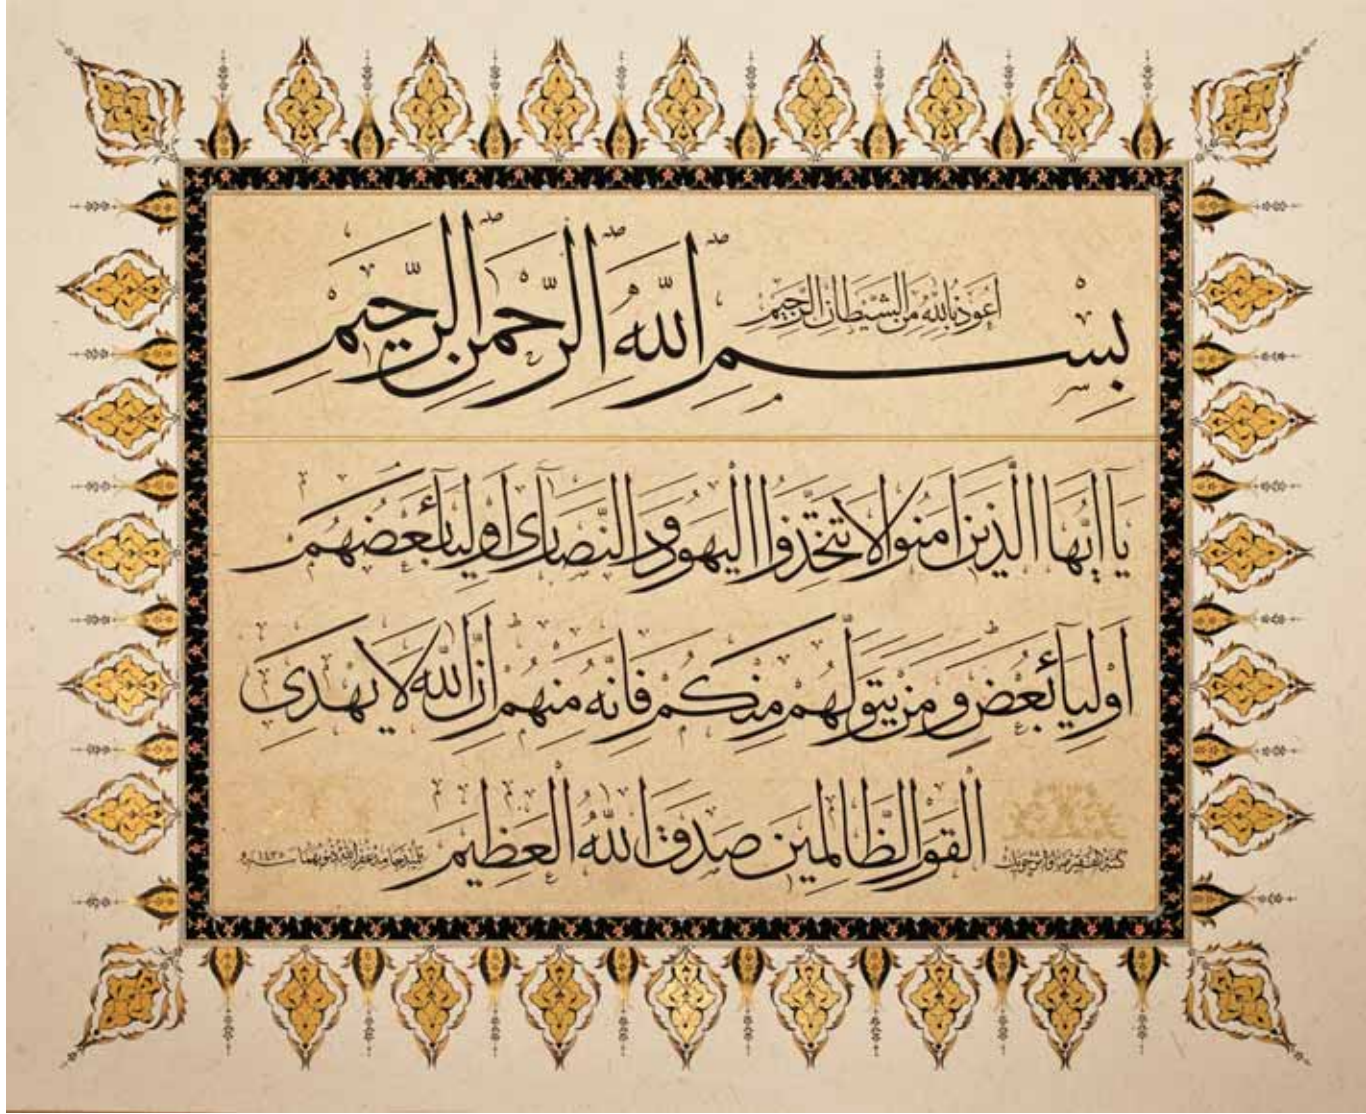 أعوذ بالله من الشيطان الرجيم
بسم الله الرحمن الرحيم
يا أيها الذين امنوا لا تتخذوا اليهود والنصارى اولياء بعضهم
اولياء بعض ومن يتولهم منكم فانه منهم ان الله لا يهدى
القوم الظالمين صدق الله العظيم
كتبه الفقير
غفر الله ذنوبهما سنه ١٤٣٥